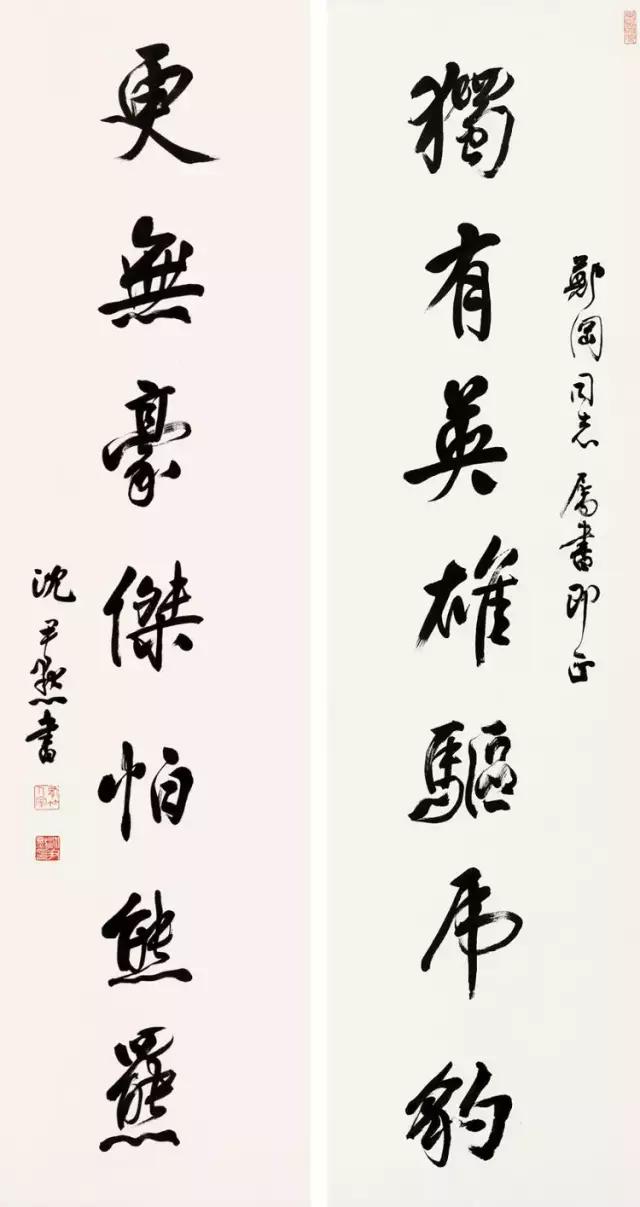 獨有英雄驅虎豹
鄭岡同志屬書即正
更無豪傑怕熊羆
沈尹默書